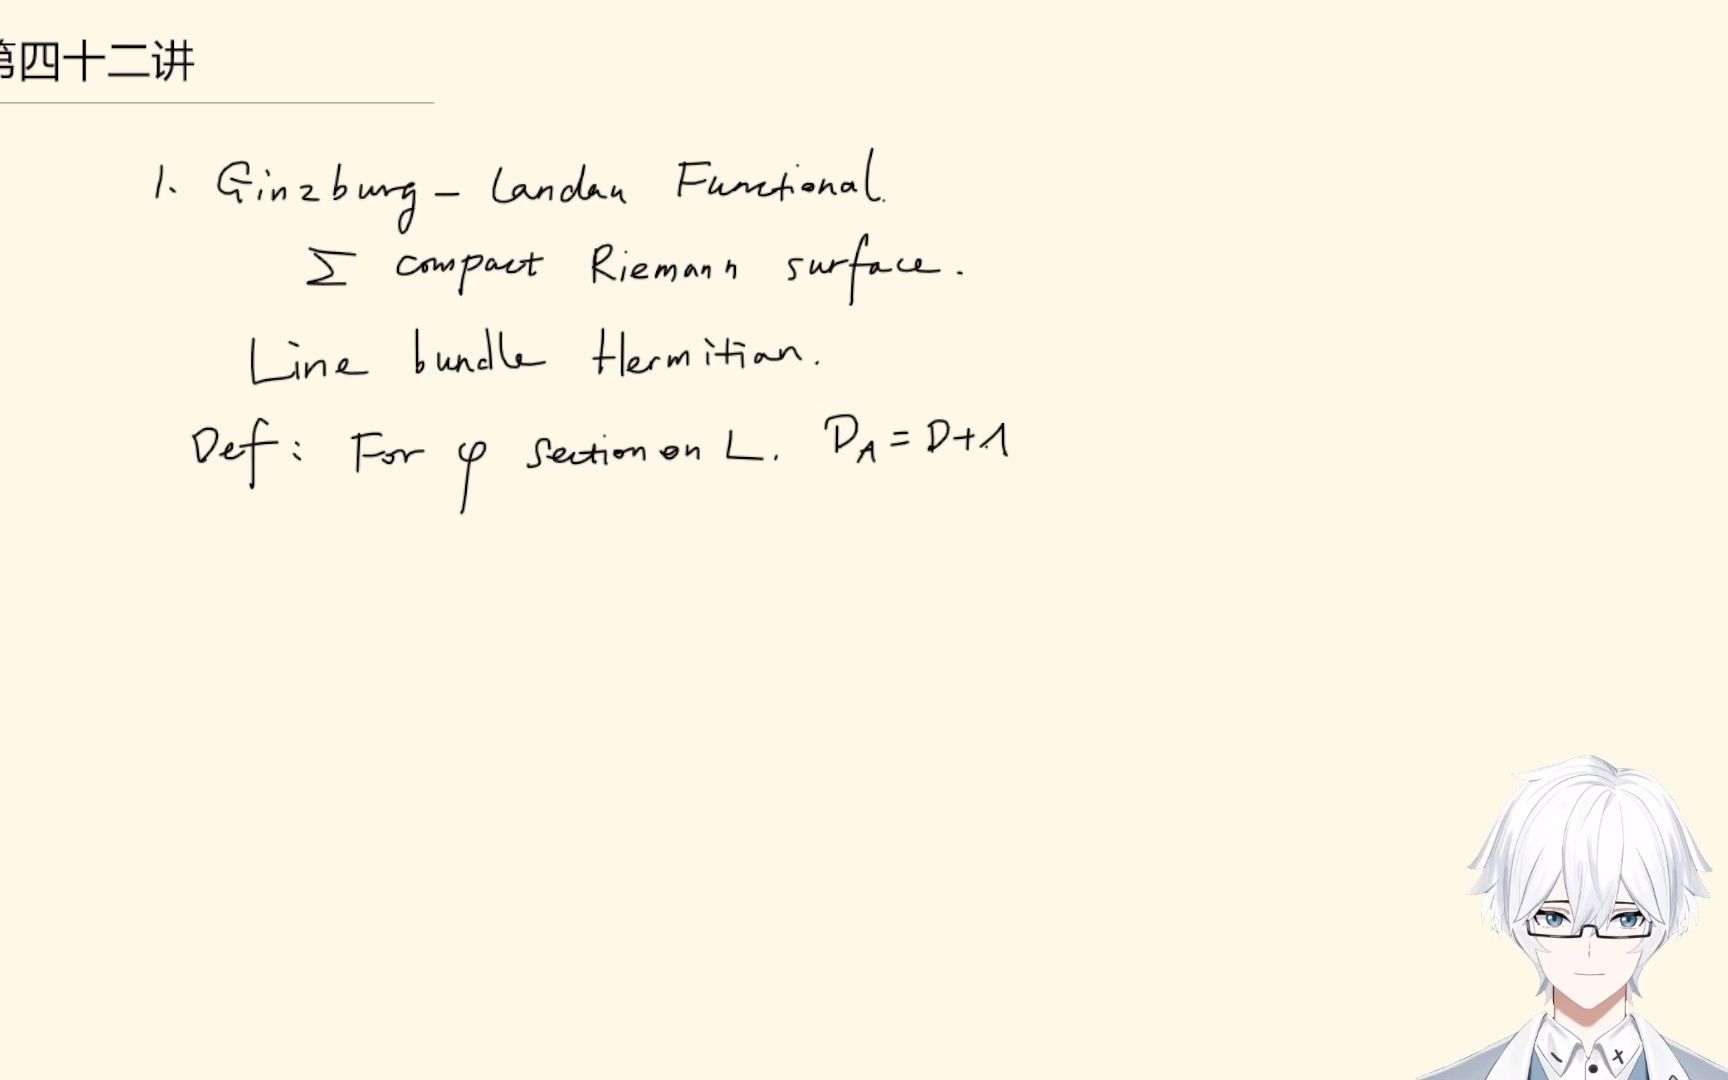 第四十二讲
1. Ginzburg - Landau Functional.
Σ compact Riemann surface.
Line bundle Hermitian.
Def: For φ section on L. D_A = D + A